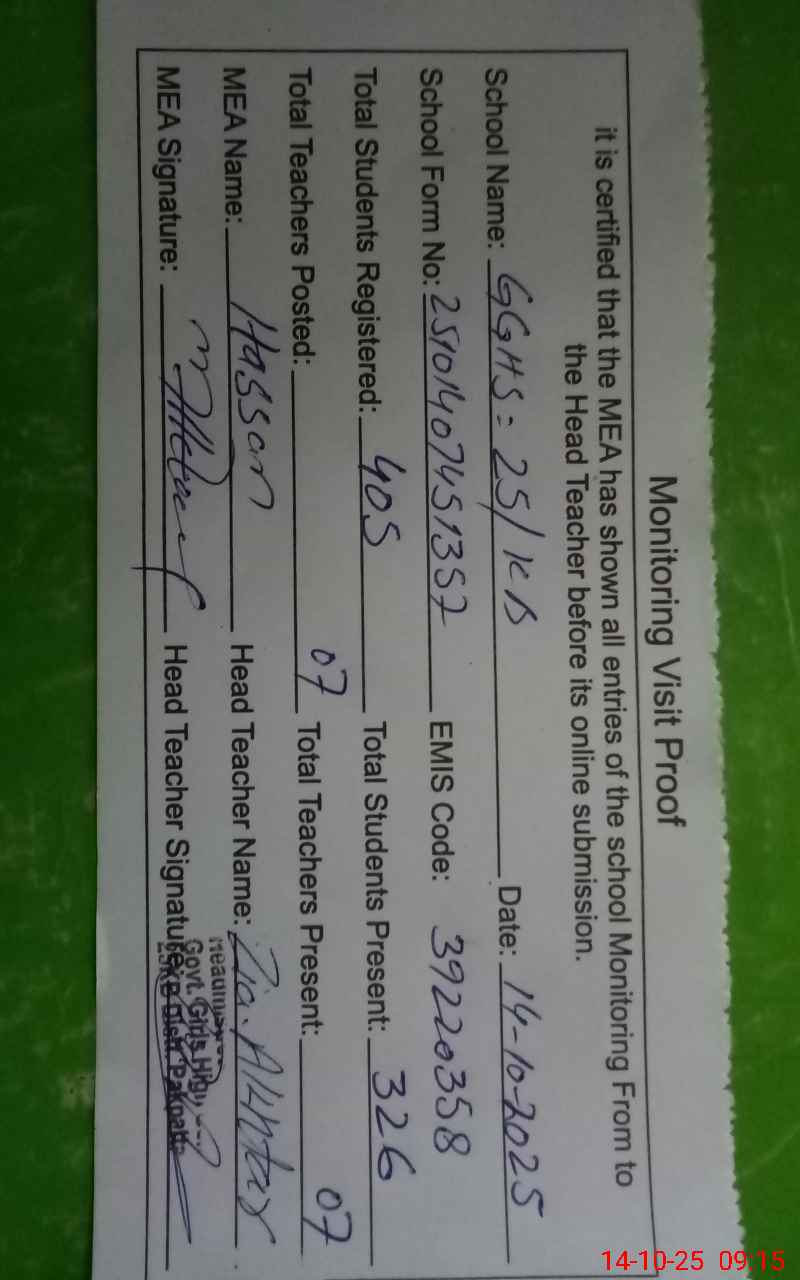 Monitoring Visit Proof
it is certified that the MEA has shown all entries of the school Monitoring From to
the Head Teacher before its online submission.
School Name: GGHS: 25/KB Date: 14-10-2025
School Form No: 25101407451357 EMIS Code: 39220358
Total Students Registered: 405 Total Students Present: 326
Total Teachers Posted: 07 Total Teachers Present: 07
MEA Name: Hassan Head Teacher Name: Zia. Akhtar
MEA Signature: Head Teacher Signature:
Govt. Girls High
25/KB Distt. Pakpattan
14-10-25 09:15